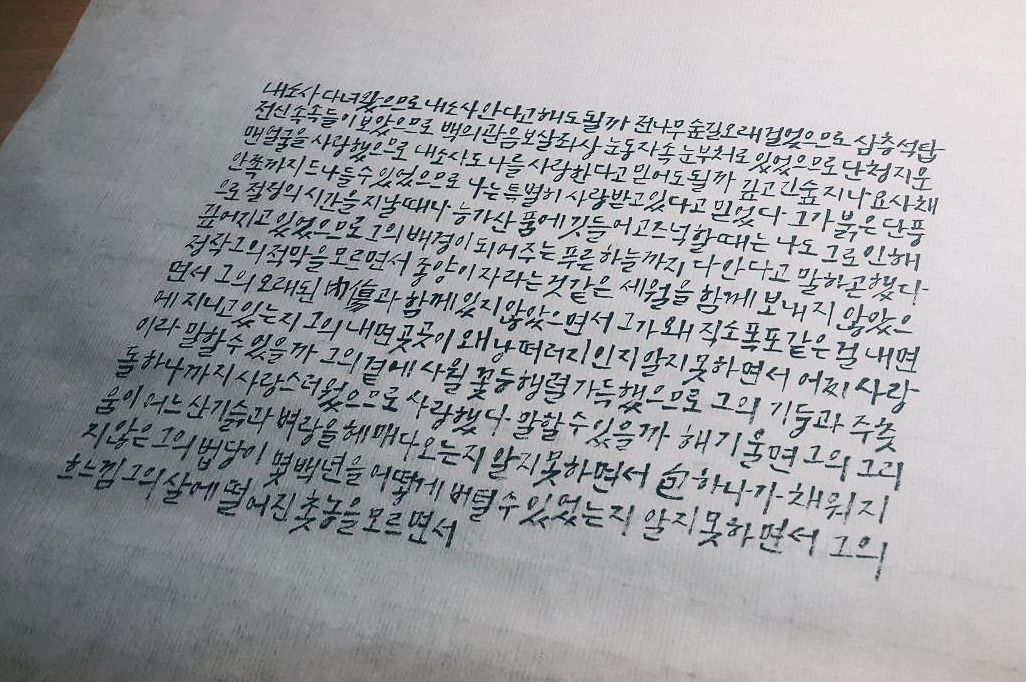 내소사 다녀왔으므로 내소사 안다고 해도 될까 전나무 숲길 오래 걸었으므로 삼층석탑
전신 속속들이 보았으므로 백의관음보살좌상 눈동자 속 눈부처로 있었으므로 단청 지운
맨얼굴을 사랑했으므로 내소사도 나를 사랑한다고 믿어도 될까 깊고 긴 숲 지나 요사채
안쪽까지 드나들 수 있었으므로 나는 특별히 사랑받고 있다고 믿었다 그가 붉은 단풍
으로 절정의 시간을 지날 때나 능가산 품에 깃들어 고즈넉할 때는 나도 그로 인해
깊어지고 있었으므로 그의 배경이 되어주는 푸른 하늘까지 다 안다고 말하곤 했다
정작 그의 적막을 모르면서 종양이 자라는 것 같은 세월을 함께 보내지 않았으
면서 그의 오래된 內傷과 함께 있지 않았으면서 그가 왜 직소폭포 같은 걸 내면
에 지니고 있는지 그의 내면 곳곳이 왜 낭떠러지인지 알지 못하면서 어찌 사랑
이라 말할 수 있을까 그의 곁에 사월 꽃등 행렬 가득했으므로 그의 기둥과 주춧
돌 하나까지 사랑스러웠으므로 사랑했다 말할 수 있을까 해 기울면 그의 그리
움이 어느 산기슭과 벼랑을 헤매다 오는지 알지 못하면서 包 하나가 채워지
지 않은 그의 법당이 몇백 년을 어떻게 버틸 수 있었는지 알지 못하면서 그의
흐느낌 그의 살에 떨어진 촛농을 모르면서